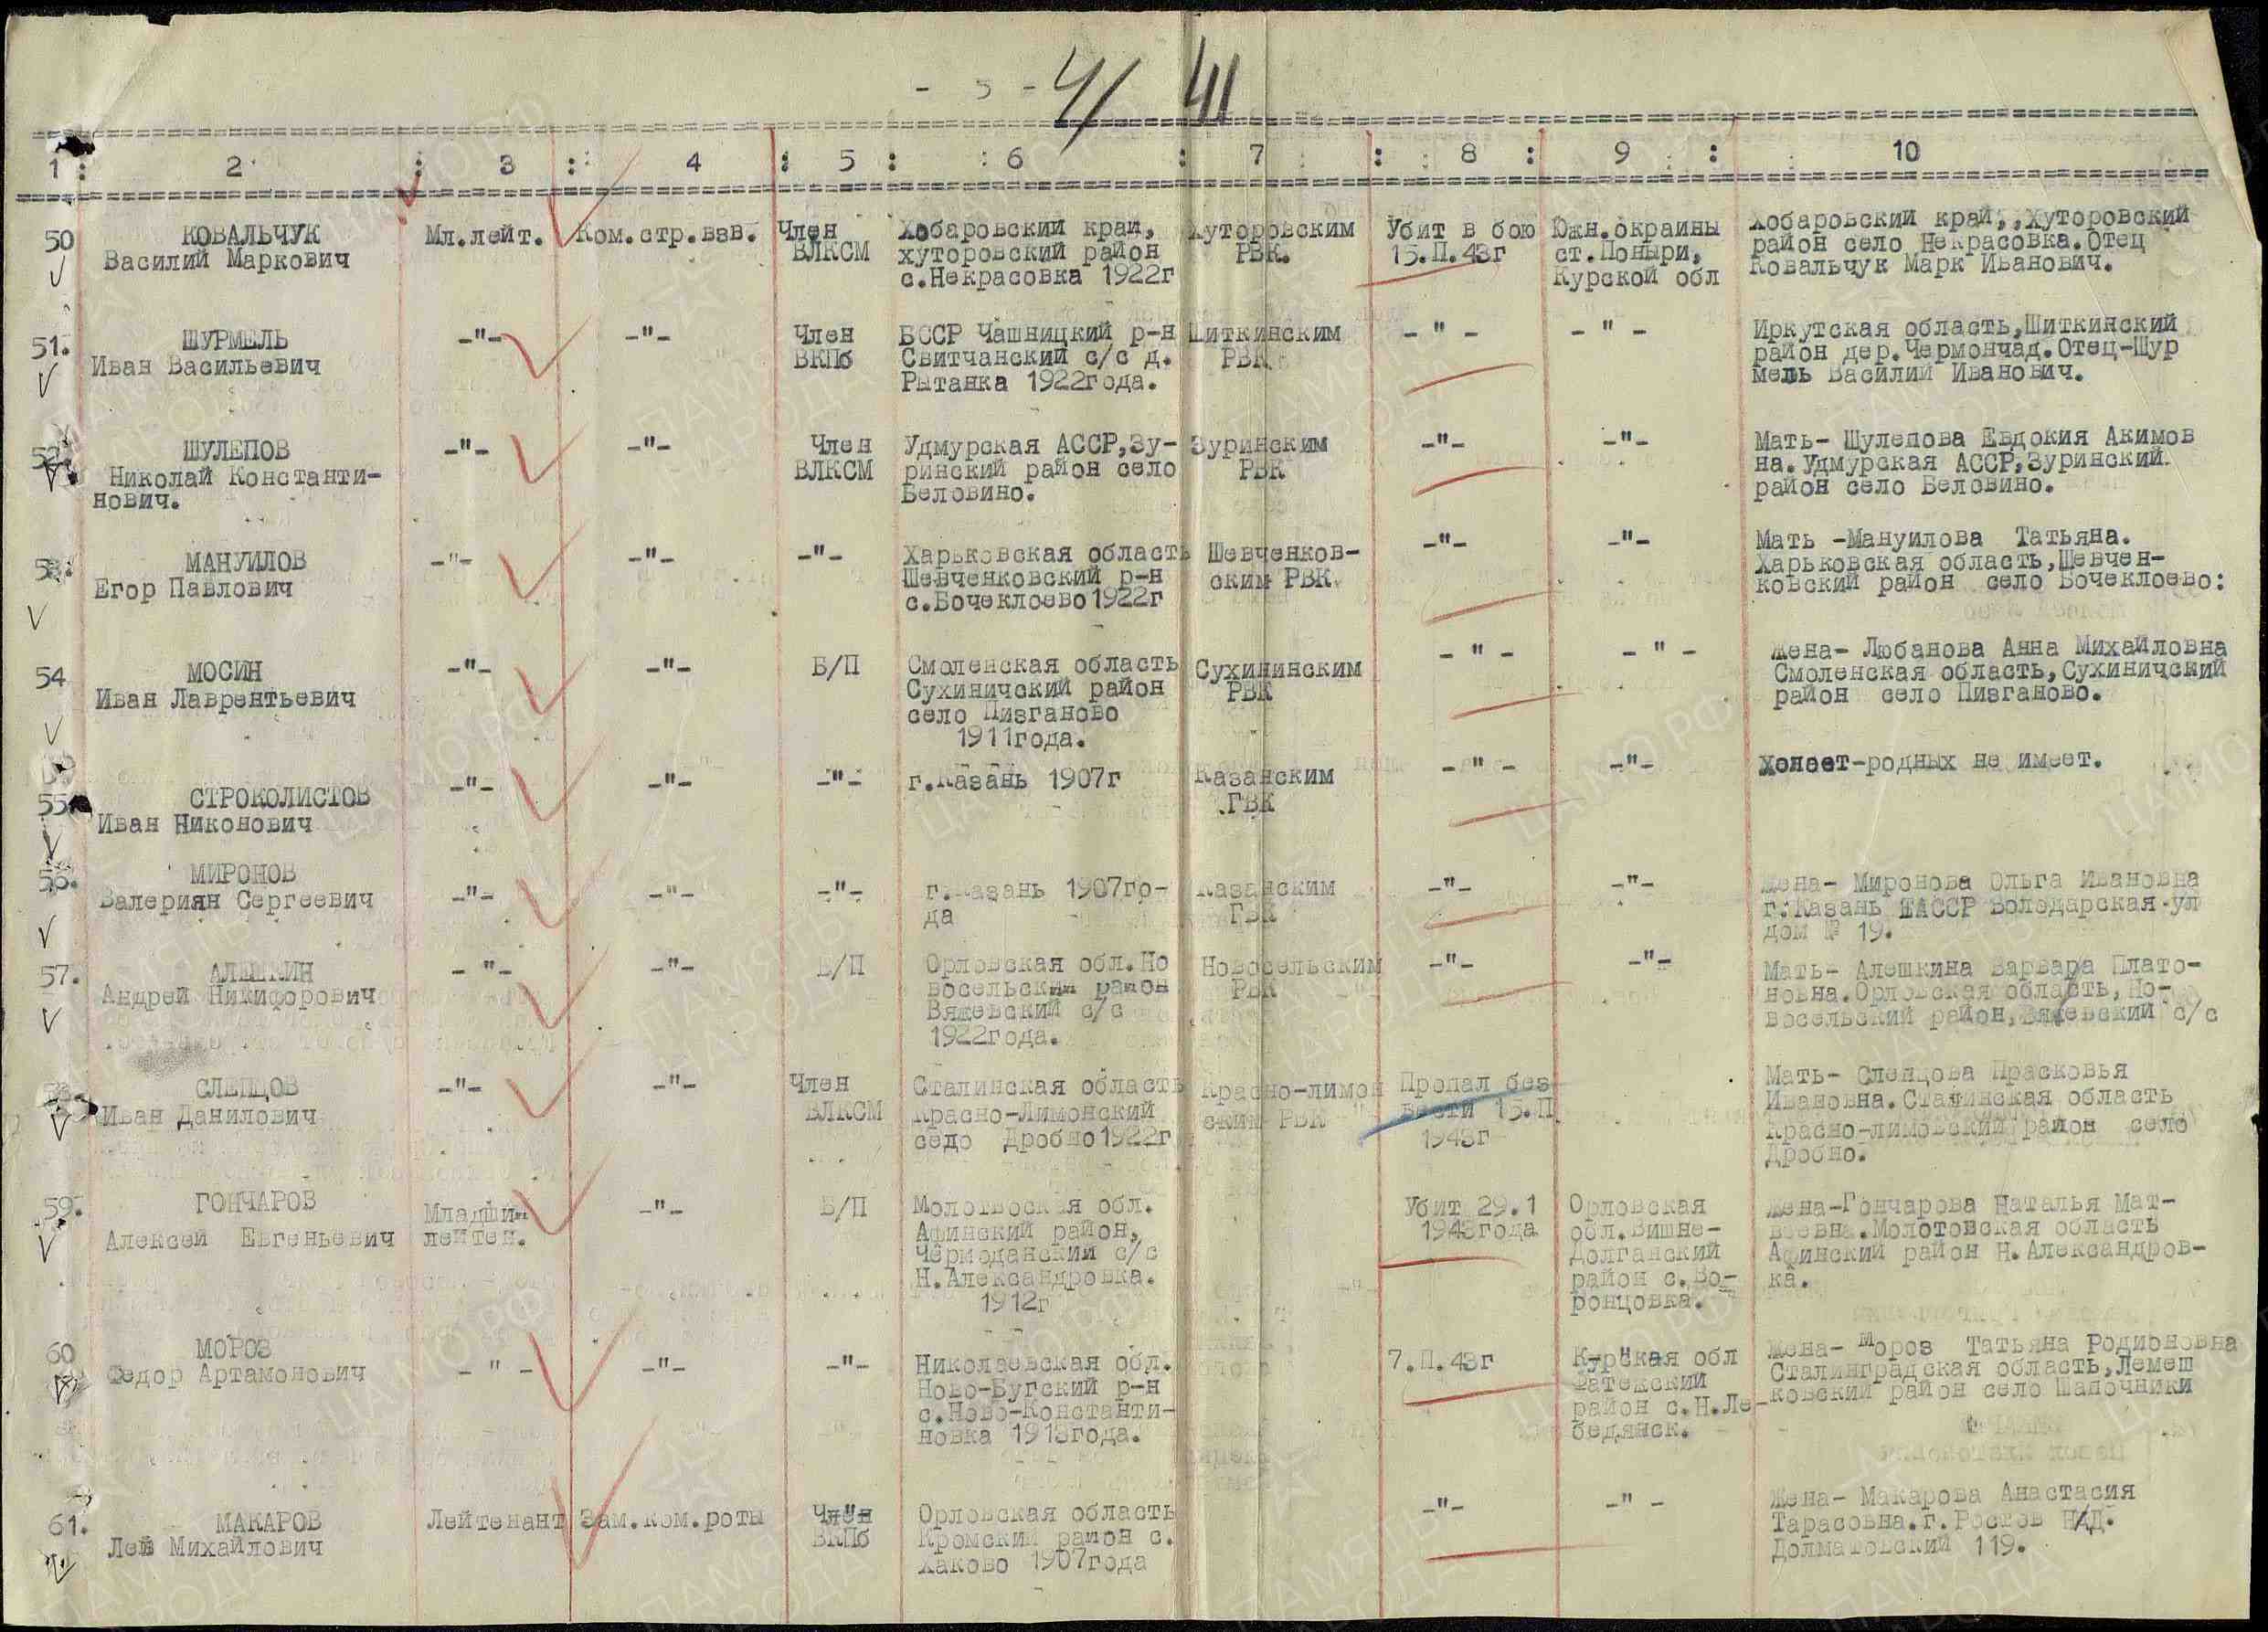 - 5 - 41 41
1 : 2 : 3 : 4 : 5 : 6 : 7 : 8 : 9 : 10
50 КОВАЛЬЧУК
Василий Маркович
Мл.лейт.
Ком.стр.взв.
Член
ВЛКСМ
Хобаровский край,
хуторовский район
с.Некрасовка 1922г
Хуторовским
РВК.
Убит в бою
15.П.43г
Юж.окраины
ст.Поныри,
Курской обл
Хобаровский край,,Хуторовский
район село Некрасовка.Отец
Ковальчук Марк Иванович.
51. ШУРМЕЛЬ
Иван Васильевич
-"-
-"-
Член
ВКПб
БССР Чашницкий р-н
Свитчанский с/с д.
Рытанка 1922года.
Шиткинским
РВК
- " -
- " -
Иркутская область,Шиткинский
район дер.Чермончад.Отец-Шур
мель Василий Иванович.
52. ШУЛЕПОВ
Николай Константи-
нович.
-"-
-"-
Член
ВЛКСМ
Удмурская АССР,Зу-
ринский район село
Беловино.
Зуринским
РВК
-"-
-"-
Мать- Шулепова Евдокия Акимов
на.Удмурская АССР,Зуринский
район село Беловино.
53. МАНУИЛОВ
Егор Павлович
-"-
-"-
-"-
Харьковская область
Шевченковский р-н
с.Бочеклоево1922г
Шевченков-
ским РВК.
-"-
-"-
Мать -Мануилова Татьяна.
Харьковская область,Шевчен-
ковский район село Бочеклоево:
54 МОСИН
Иван Лаврентьевич
-"-
-"-
Б/П
Смоленская область
Сухиничский район
село Пизганово
1911года.
Сухининским
РВК
- " -
- " -
Жена- Любанова Анна Михайловна
Смоленская область,Сухиничский
район село Пизганово.
55. СТРОКОЛИСТОВ
Иван Никонович
-"-
-"-
-"-
г.Казань 1907г
Казанским
ГВК
- " -
-"-
Холост-родных не имеет.
56. МИРОНОВ
Валериян Сергеевич
-"-
-"-
-"-
г.Казань 1907го-
да
Казанским
ГВК
-"-
-"-
Жена- Миронова Ольга Ивановна
г.Казань ТАССР Володарская ул
дом № 19.
57. АЛЕШКИН
Андрей Никифорович
- "-
-"-
Б/П
Орловская обл.Но
восельский район
Вяжевский с/с
1922года.
Новосельским
РВК
-"-
-"-
Мать- Алешкина Варвара Плато-
новна.Орловская область,Но-
восельский район,Вяжевский с/с
58. СЛЕПЦОВ
Иван Данилович
-"-
-"-
Член
ВЛКСМ
Сталинская область
Красно-Лимонский
село Дробно1922г
Красно-лимон
ским РВК
Пропал без
вести 15.П
1943г
Мать- Слепцова Прасковья
Ивановна.Сталинская область
Красно-лимовский район село
Дробно.
59. ГОНЧАРОВ
Алексей Евгеньевич
Младший
лейтен.
-"-
Б/П
Молотвоская обл.
Афинский район,
Чермоданский с/с
Н.Александровка.
1912г
Убит 29.1
1943года
Орловская
обл.Вишне-
Долганский
район с.Во-
ронцовка.
Жена-Гончарова Наталья Мат-
веевна.Молотовская область
Афинский район Н.Александров-
ка.
60 МОРОЗ
Федор Артамонович
- " -
-"-
-"-
Николаевская обл.
Ново-Бугский р-н
с.Ново-Константи-
новка 1913года.
7.П.43г
Курская обл
Фатежский
район с.Н.Ле-
бедянск.
Жена- Мороз Татьяна Родионовна
Сталинградская область,Лемеш
ковский район село Шапочники
61. МАКАРОВ
Лев Михайлович
Лейтенант
Зам.ком.роты
Член
ВКПб
Орловская область
Кромский район с.
Хаково 1907года
-"-
-" -
Жена- Макарова Анастасия
Тарасовна.г.Ростов Н/Д.
Долматовский 119.